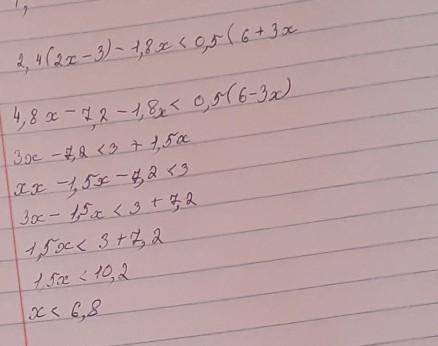 2,4(2x-3)-1,8x<0,5(6+3x
4,8x-7,2-1,8x<0,5(6-3x)
3x-7,2<3+1,5x
xx-1,5x-7,2<3
3x-1,5x<3+7,2
1,5x<3+7,2
1,5x<10,2
x<6,8